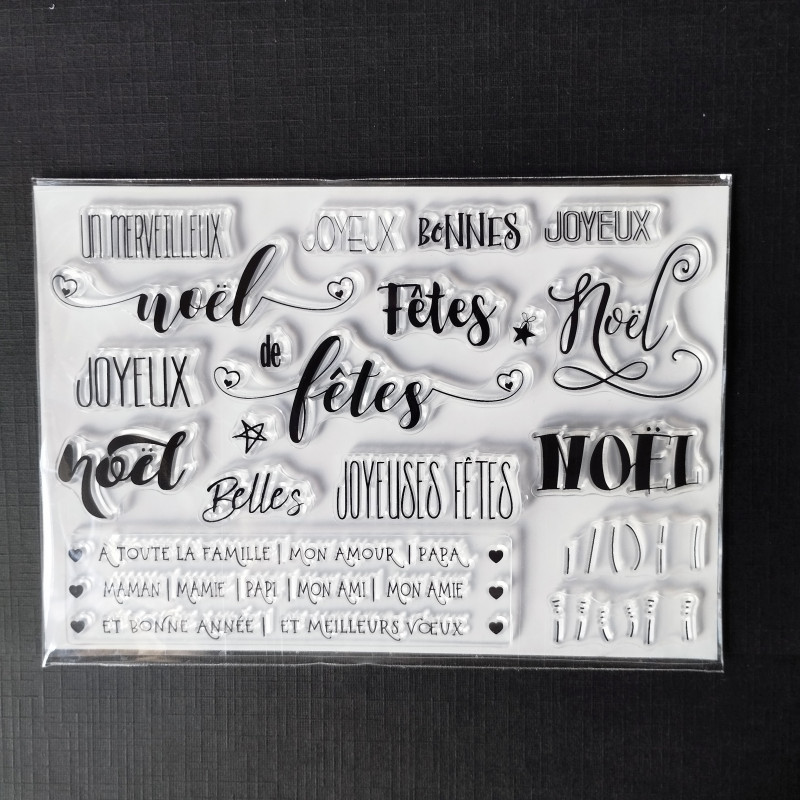 UN MERVEILLEUX
JOYEUX
BONNES
JOYEUX
noël
Fêtes
Noël
de
JOYEUX
fêtes
noël
Belles
JOYEUSES FÊTES
NOËL
A TOUTE LA FAMILLE | MON AMOUR | PAPA
MAMAN | MAMIE | PAPI | MON AMI | MON AMIE
ET BONNE ANNÉE | ET MEILLEURS VŒUX